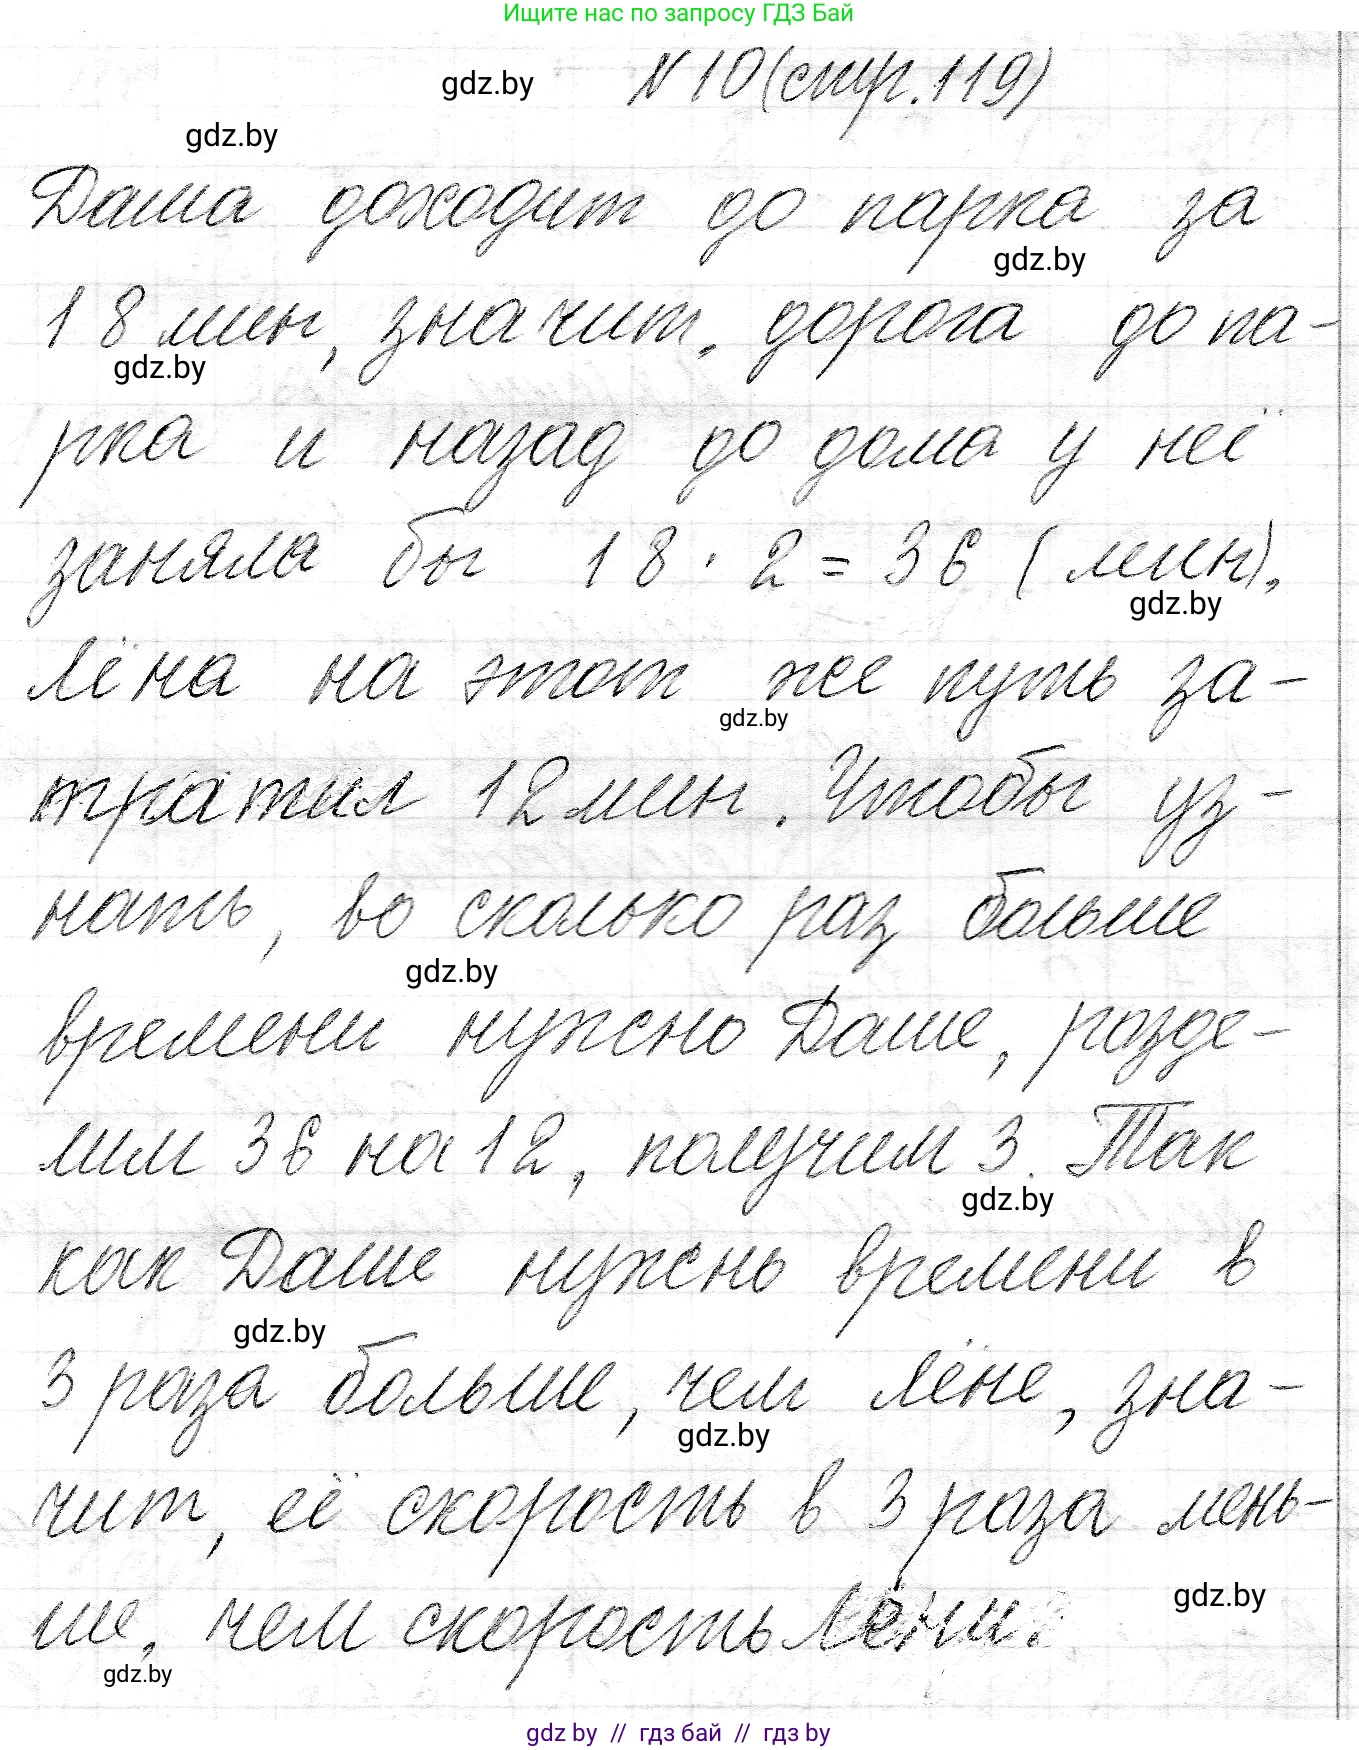 Ищите нас по запросу ГДЗ Бай
gdz.by № 10 (стр. 119)
gdz.by
Даша доходит до парка за
gdz.by
18 мин, значит, дорога до па-
gdz.by
рка и назад до дома у неё
заняла бы 18 · 2 = 36 (мин),
gdz.by
Лёна на этот же путь за-
gdz.by
тратил 12 мин. Чтобы уз-
нать, во сколько раз больше
gdz.by
времени нужно Даше, разде-
лим 36 на 12, получим 3. Так
gdz.by
как Даше нужнь времени в
gdz.by
3 раза больше, чем лёне, зна-
gdz.by
чит, её скорость в 3 раза мень-
gdz.by
ше, чем скорость Лёни.
gdz.by
gdz by // гдз бай // гдз by